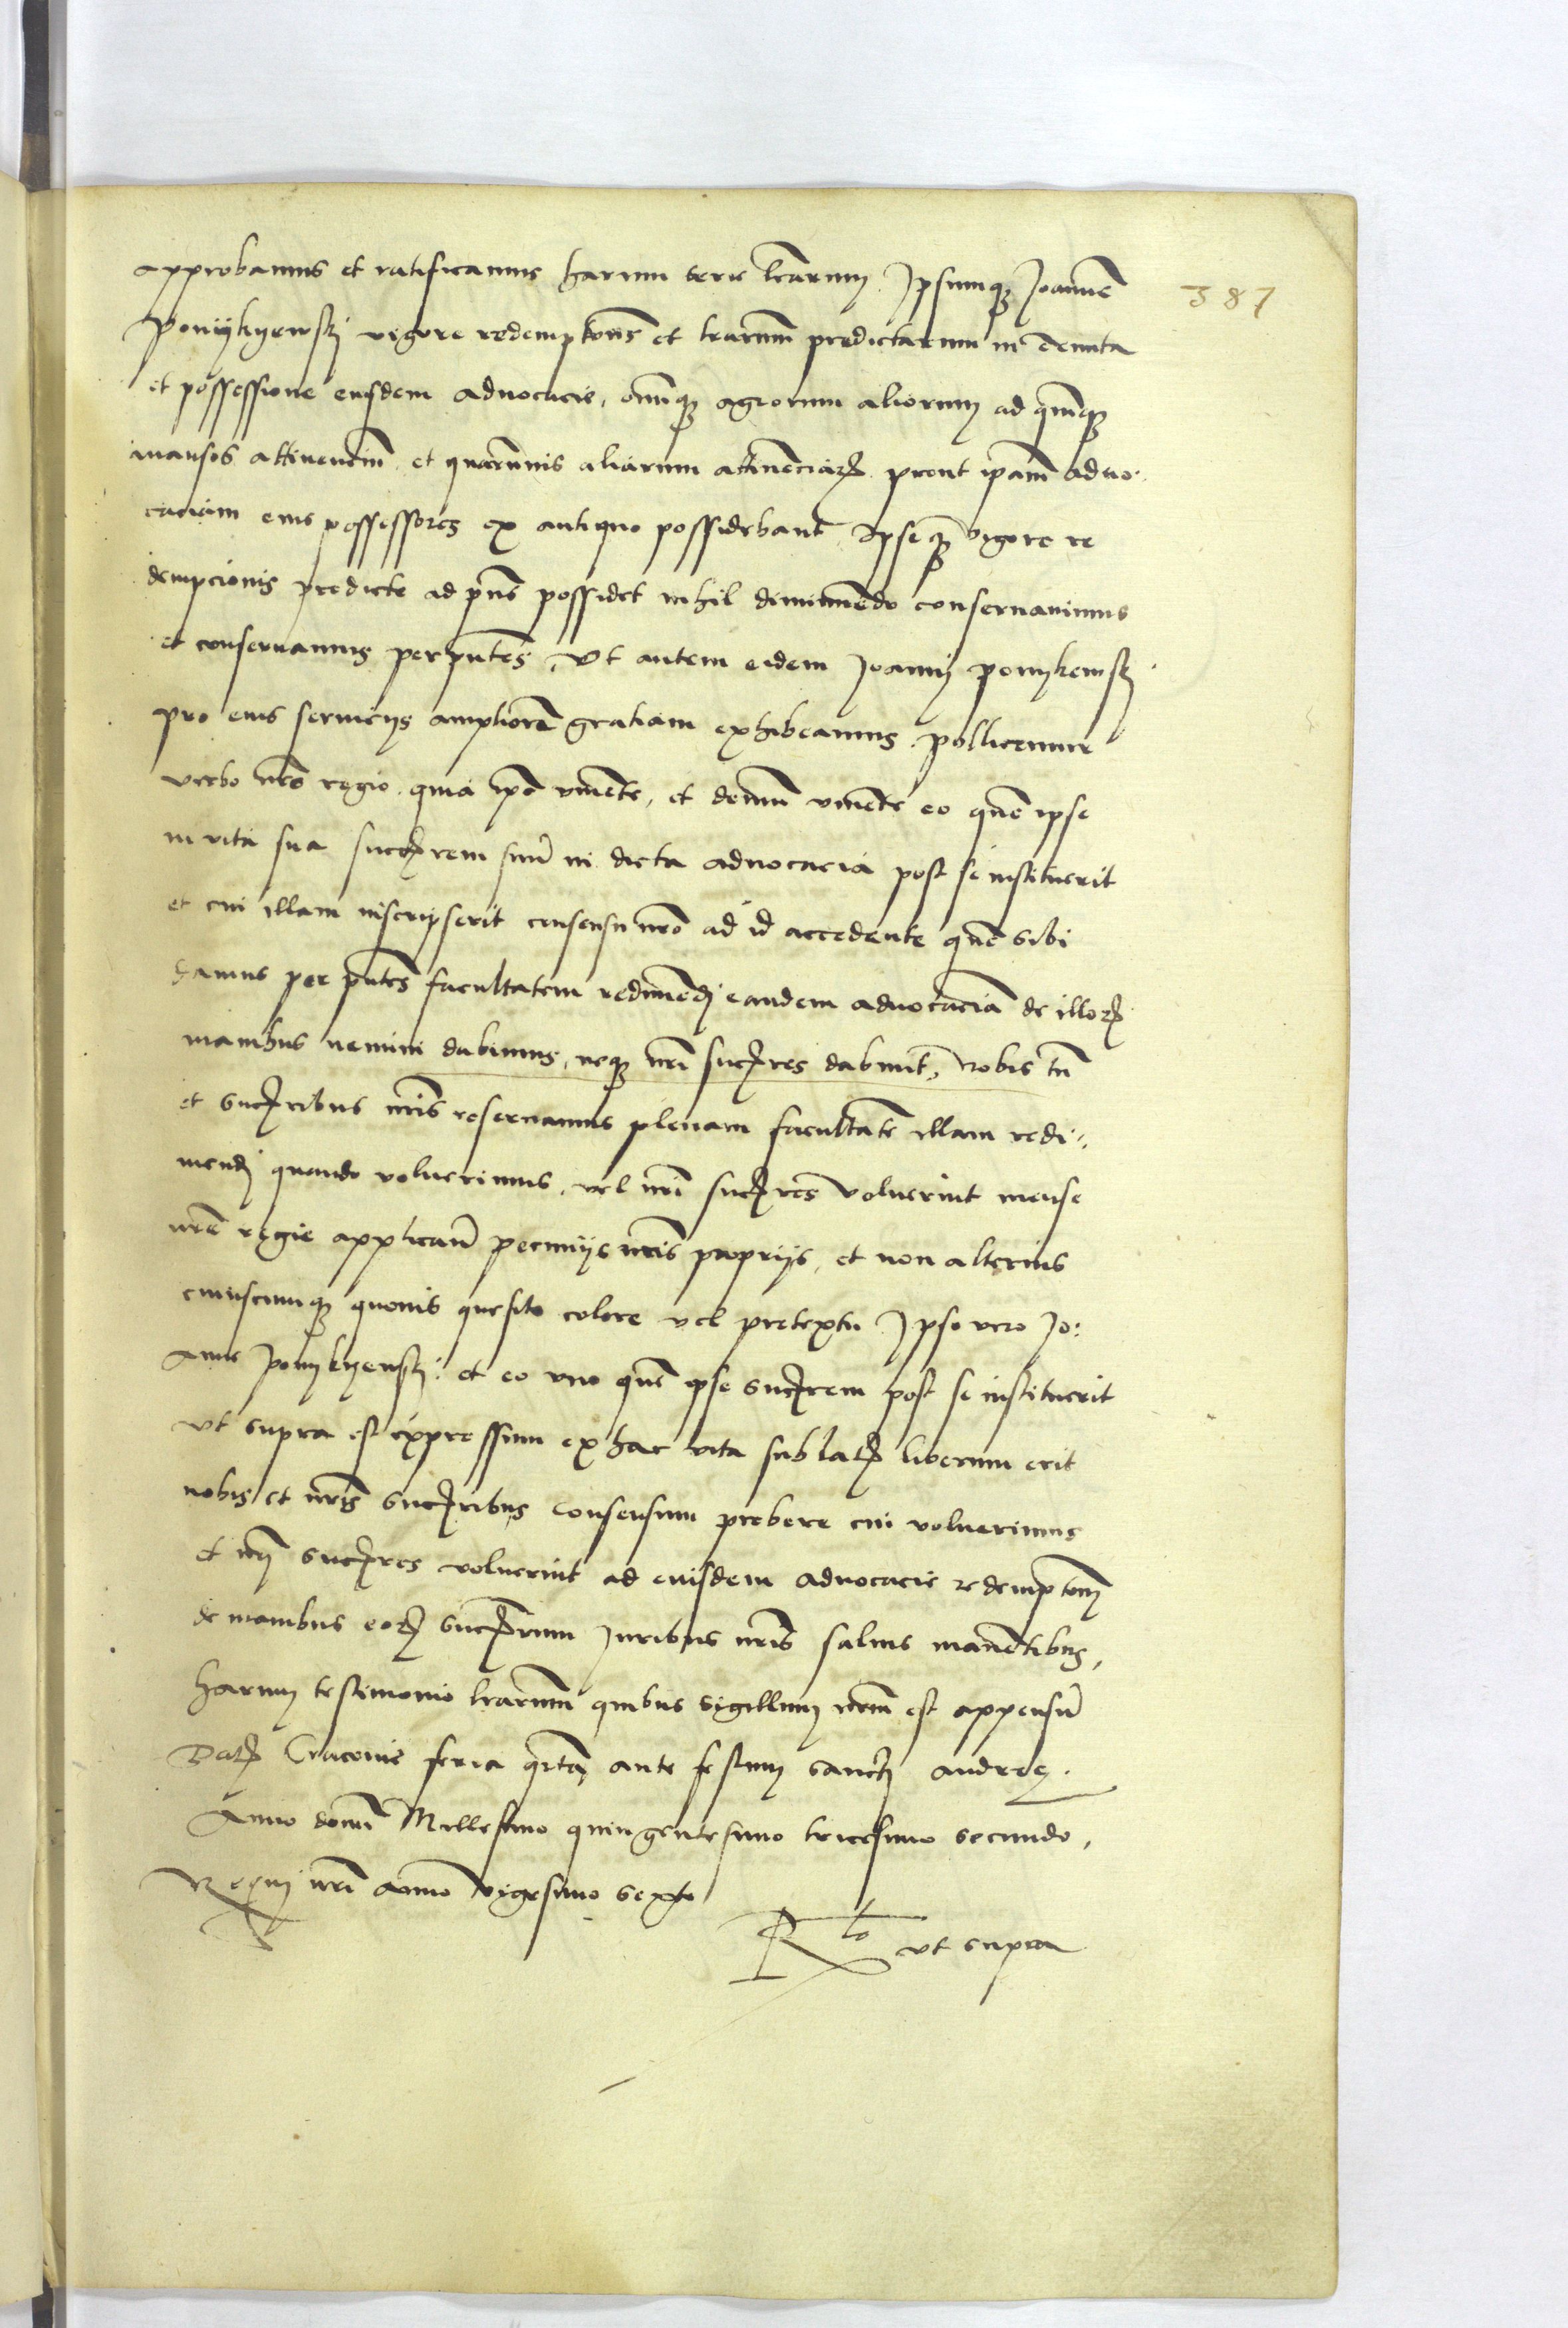 approbamus et ratificamus harum serie lrarum Ipsumq₃ Joannẽ
387
Ponijkyewskj vigore redemptionis et lrarum predictarum in tenuta
et possessione eiusdem aduocacie, omniq₃ agrorum aliorum ad quinq₃
mansos attinencium et quarumuis aliarum attinenciarꝝ prout ipam aduo-
caciam eius possessores ex antiquo possidebant Ipseq₃ vigore re
dempcionis predicte ad pñs possidet nihil diminuendo conseruauimus
et conseruamus per pñtes, Vt autem eidem Joannij ponykewskj
pro eius seruicijs ampliorẽ gratiam exhibeamus, pollicemur
verbo nro regio, quia ipo viuente, et demum viuente eo quẽ ipse
in vita sua succꝭrem suũ in dicta aduocacia post se instituerit
et cui illam inscripserit consensu nro ad id accedente quẽ sibi
damus per pñtes facultatem redimendj eandem aduocaciã de illoꝝ
manibus nemini dabimus, neq₃ nri succꝭres dabunt, Nobis tñ
et succꝭribus nris reseruamus plenam facultatẽ illam redi-
mendj quando voluerimus, vel nri succꝭres voluerint mense
nre regie applicanḋ pecunijs nris proprijs, et non alterius
cuiuscumq₃ quouis quesito colore vel pretextu Ipso vero Jo:
anne Ponykyewskj: et eo vno quẽ ipse succꝭrem post se instituerit
vt supra est expressum ex hac vita sublatꝭ liberum erit
nobis et nris succꝭribus consensum prebere cui voluerimus
et nrj succꝭres voluerint ad euisdem aduocacie redemptionem
de manibus eoꝝ succꝭrum Juribus nris saluis manentibus,
harum testimonio lrarum quibus sigillum nrum est appensũ
Datꝭ Cracouie feria qrta ante festum sanctj andree.
Anno domĩ Millesimo quingentesimo tricesimo secundo,
Regnj nri anno vigesimo sexto
Rlo vt supra